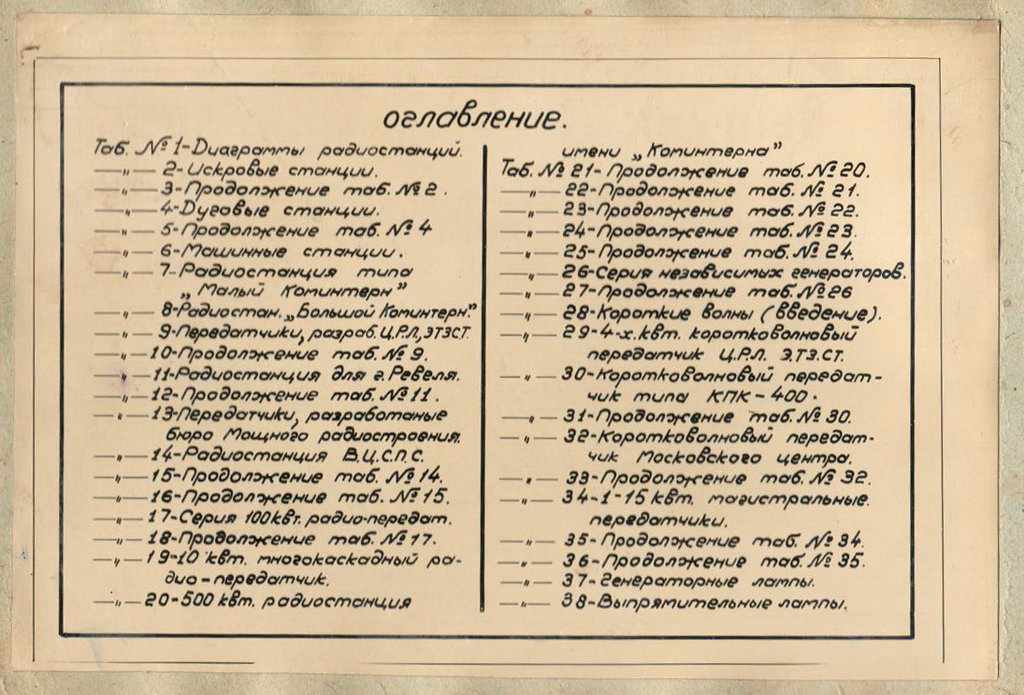 оглавление.
Таб. № 1-Диаграммы радиостанций.
—„— 2-Искровые станции.
—„— 3-Продолжение таб. № 2.
—„— 4-Дуговые станции.
—„— 5-Продолжение таб. № 4
—„— 6-Машинные станции.
—„— 7-Радиостанция типа
„Малый Коминтерн”
—„— 8-Радиостан. „Большой Коминтерн.”
—„— 9-Передатчики, разраб. Ц.Р.Л, ЭТЗСТ
—„— 10-Продолжение таб. № 9.
—„— 11-Радиостанция для г. Ревеля.
—„— 12-Продолжение таб. № 11.
—„— 13-Передатчики, разработаные
бюро Мощного радиостроения.
—„— 14-Радиостанция В.Ц.С.П.С.
—„— 15-Продолжение таб. № 14.
—„— 16-Продолжение таб. № 15.
—„— 17-Серия 100 квт. радио-передат.
—„— 18-Продолжение таб. № 17.
—„— 19-10 квт. многокаскадный ра-
дио-передатчик.
—„— 20-500 квт. радиостанция
имени „Коминтерна”
Таб. № 21-Продолжение таб. № 20.
—„— 22-Продолжение таб. № 21.
—„— 23-Продолжение таб. № 22.
—„— 24-Продолжение таб. № 23.
—„— 25-Продолжение таб. № 24.
—„— 26-Серия независимых генераторов.
—„— 27-Продолжение таб. № 26
—„— 28-Короткие волны (введение).
—„— 29-4-х. квт. коротковолновый
передатчик Ц.Р.Л. Э.Т.З.СТ.
—„— 30-Коротковолновый передат-
чик типа КПК-400.
—„— 31-Продолжение таб. № 30.
—„— 32-Коротковолновый передат-
чик Московского центра.
—„— 33-Продолжение таб. № 32.
—„— 34-1-15 квт. магистральные
передатчики.
—„— 35-Продолжение таб. № 34.
—„— 36-Продолжение таб. № 35.
—„— 37-Генераторные лампы.
—„— 38-Выпрямительные лампы.